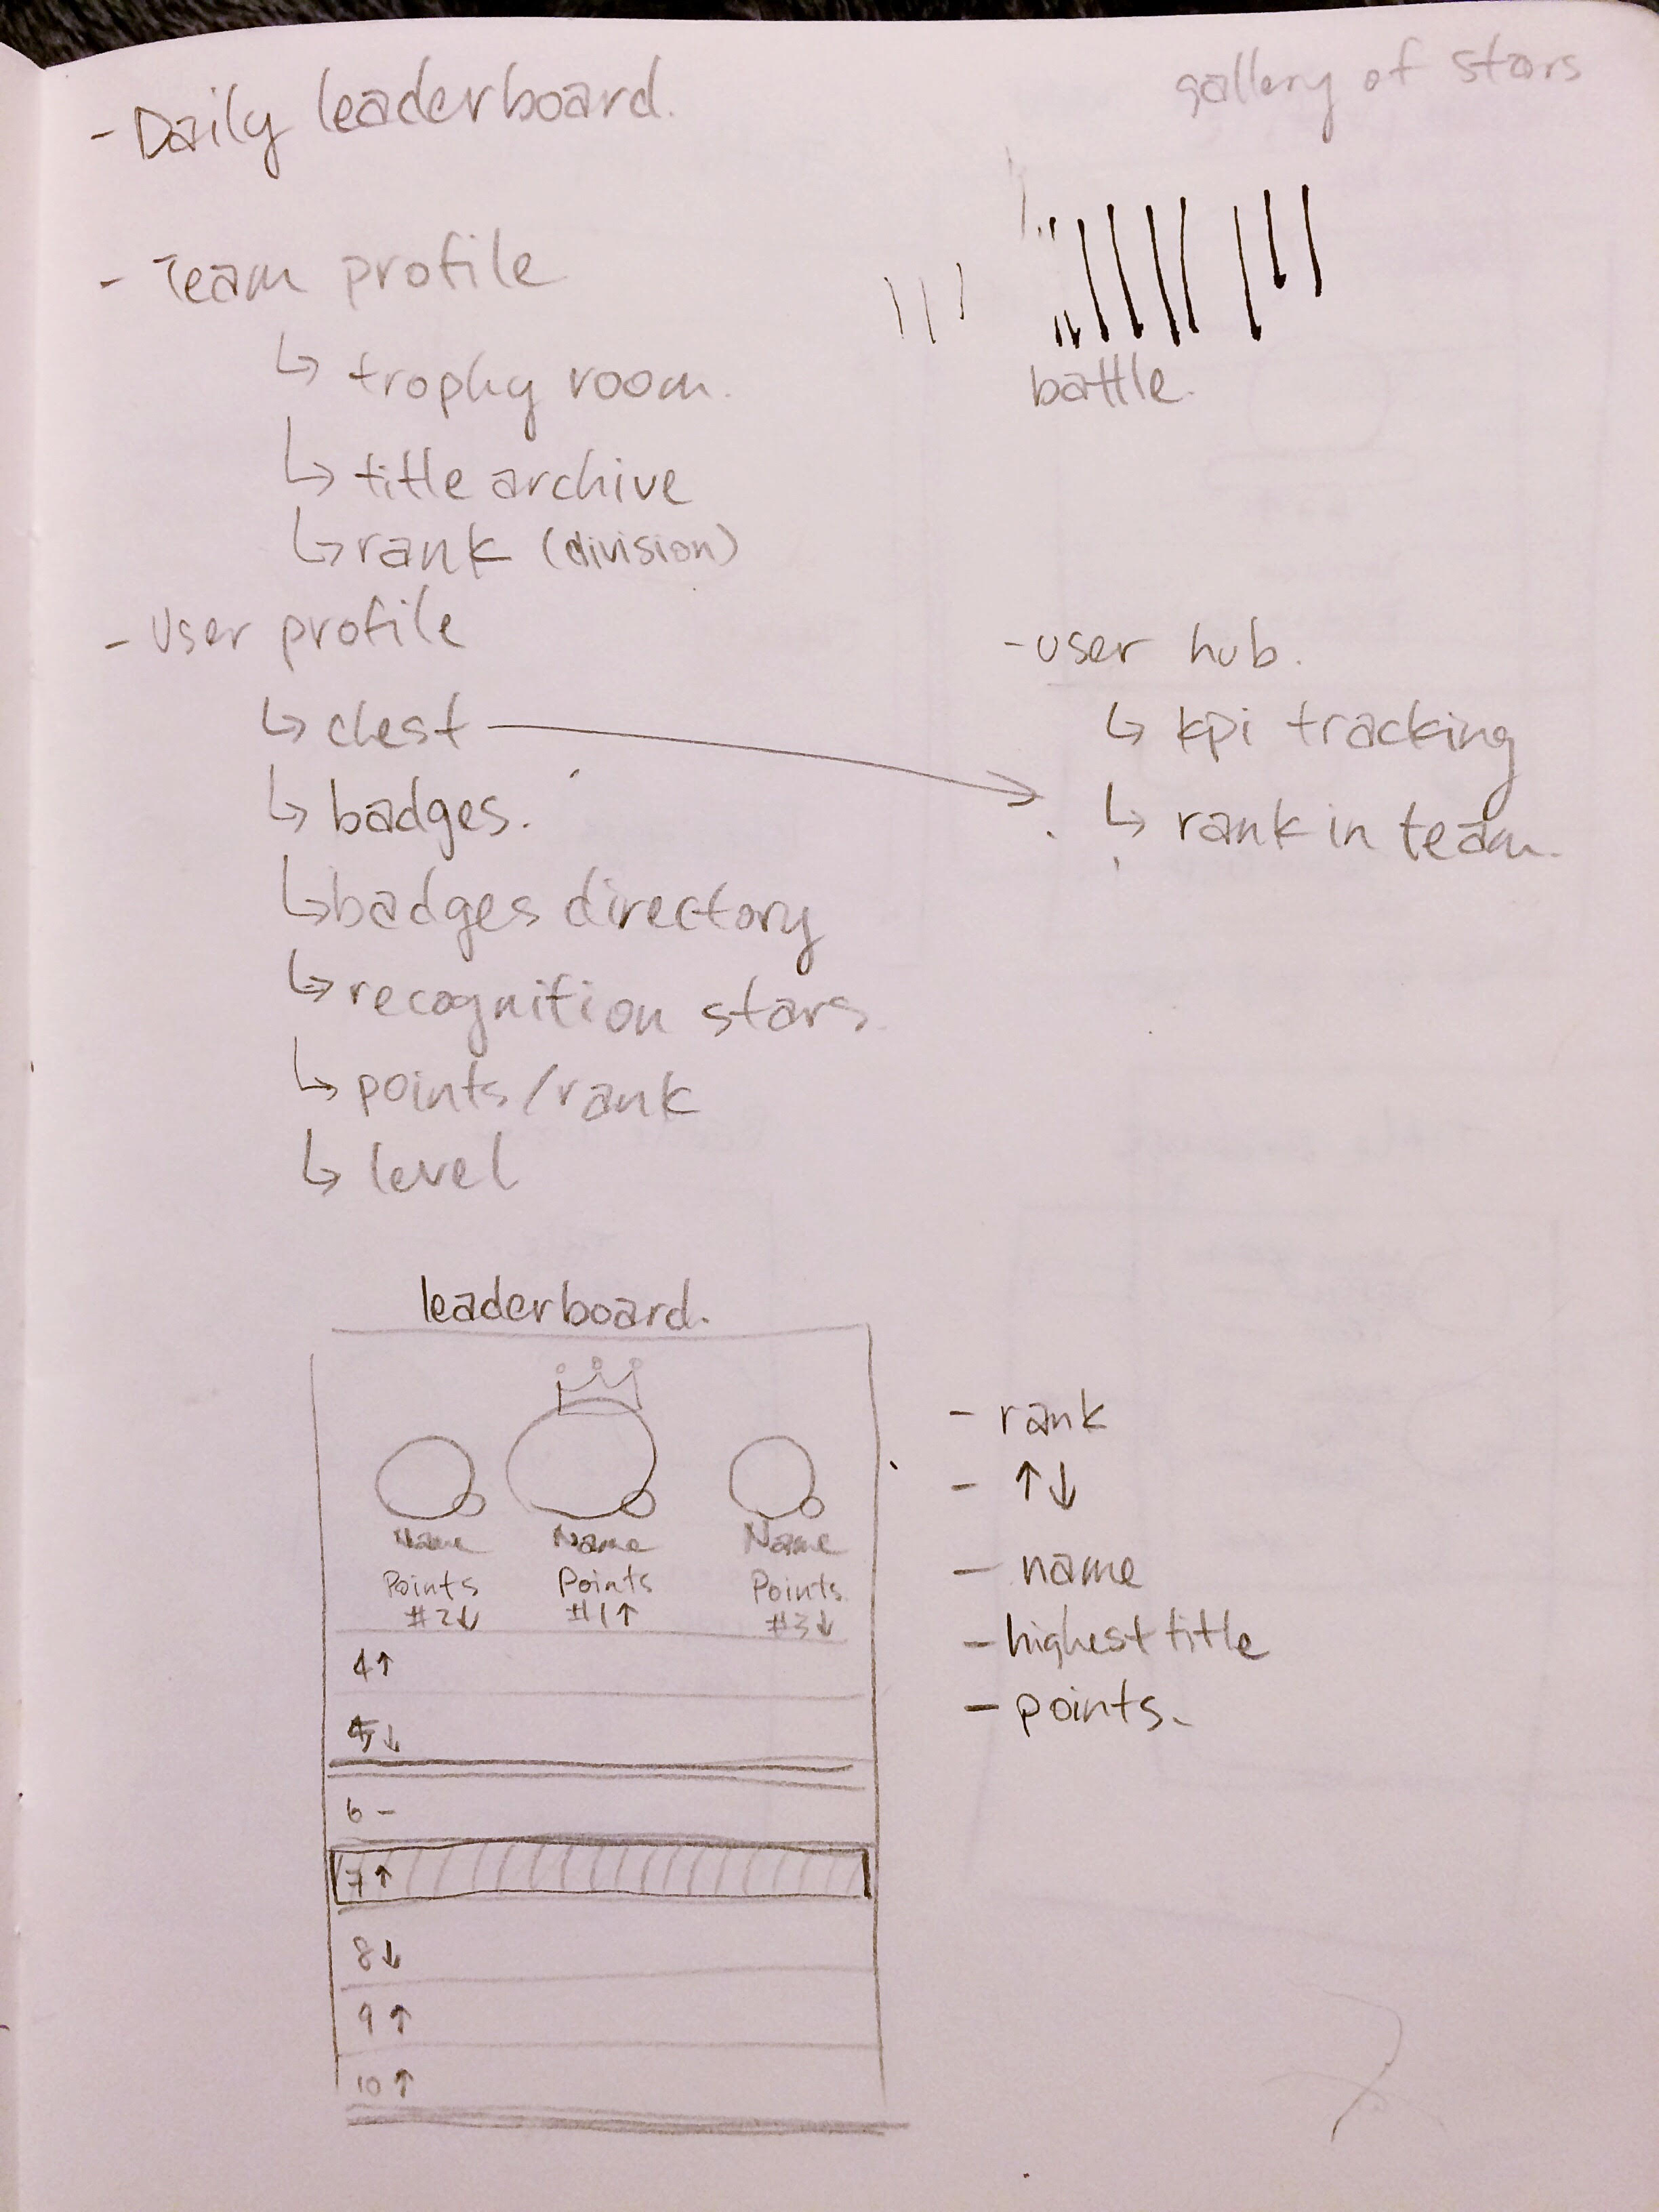 - Daily leaderboard.
gallery of stars
- Team profile
↳ trophy room.
battle.
↳ title archive
↳ rank (division)
- User profile
↳ chest
↳ badges.
↳ badges directory
↳ recognition stars
↳ points/rank
↳ level
- user hub.
↳ kpi tracking
↳ rank in team.
leaderboard.
Name Name Name
Points Points Points
#2↓ #1↑ #3↓
4↑
5↓
6 -
7↑
8↓
9↑
10↑
- rank
- ↑↓
- name
- highest title
- points.